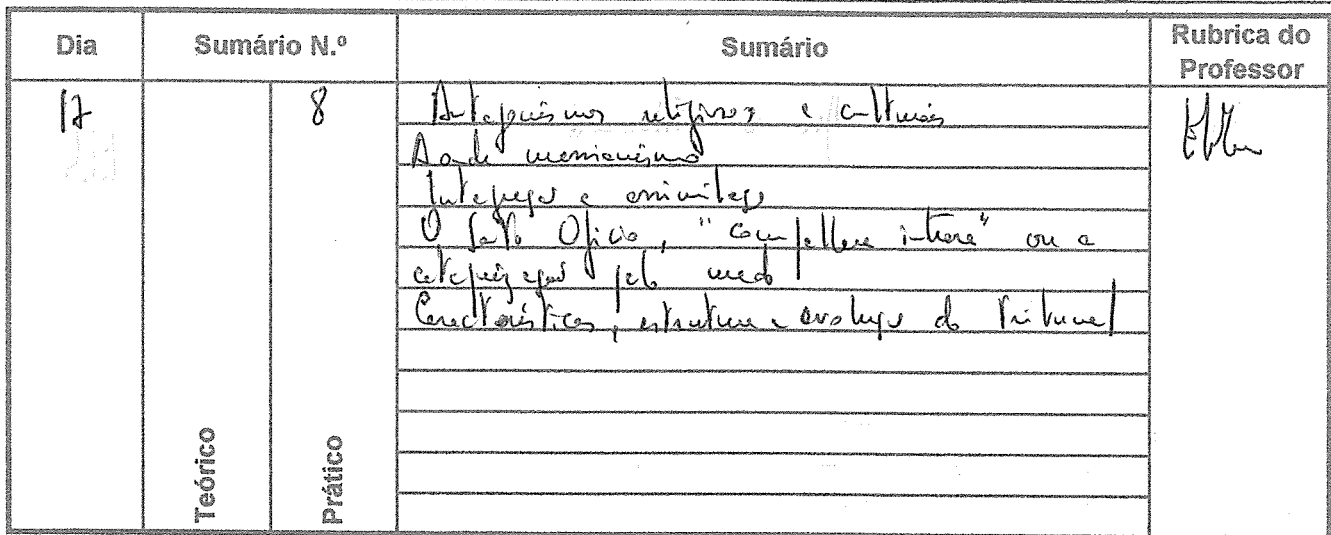 Dia Sumário N.º Sumário Rubrica do Professor
17 8 Antagonismos religiosos e culturais
A onda messianismo
Integração e assimilação
O Santo Ofício, "compellere intrare" ou a
catequização pelo medo
Características, estrutura e evolução do Tribunal
Teórico Prático